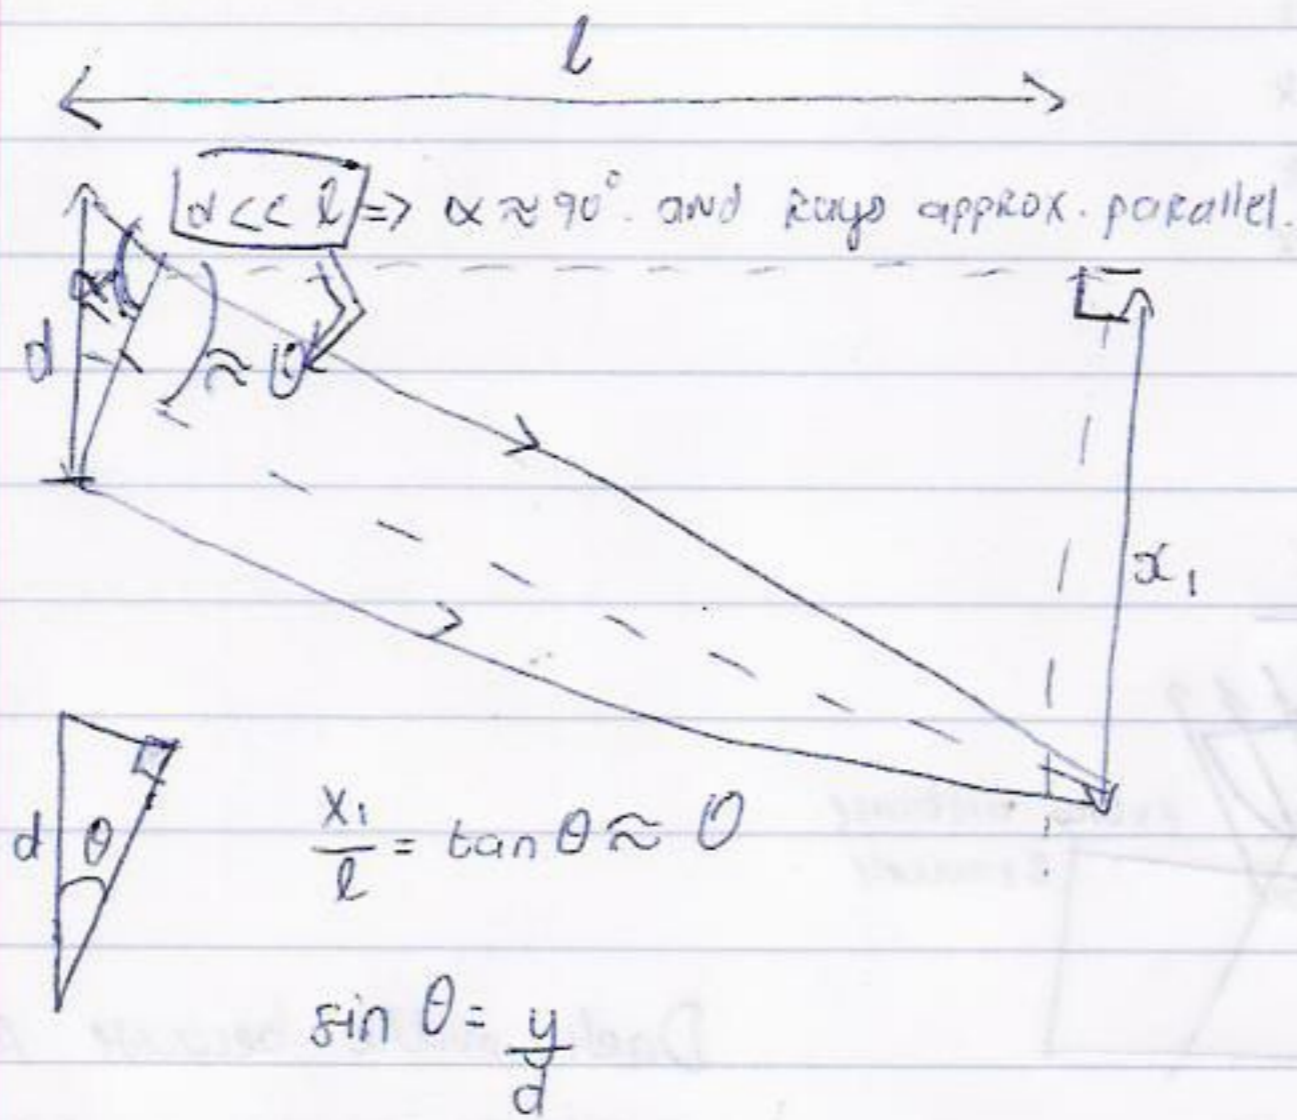 l
d << l => α ≈ 90°. and rays approx. parallel.
α
d
≈ θ
x₁
d
θ
x₁/l = tan θ ≈ θ
sin θ = y/d